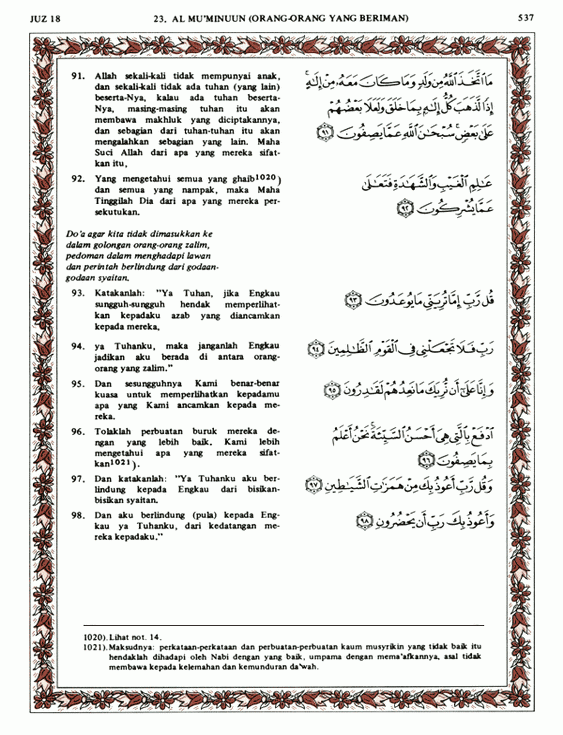 JUZ 18 23. AL MU'MINUUN (ORANG-ORANG YANG BERIMAN) 537
91. Allah sekali-kali tidak mempunyai anak,
dan sekali-kali tidak ada tuhan (yang lain)
beserta-Nya, kalau ada tuhan beserta-
Nya, masing-masing tuhan itu akan
membawa makhluk yang diciptakannya,
dan sebagian dari tuhan-tuhan itu akan
mengalahkan sebagian yang lain. Maha
Suci Allah dari apa yang mereka sifat-
kan itu,
مَا اتَّخَذَ اللَّهُ مِن وَلَدٍ وَمَا كَانَ مَعَهُ مِنْ إِلَٰهٍ
إِذًا لَّذَهَبَ كُلُّ إِلَٰهٍ بِمَا خَلَقَ وَلَعَلَا بَعْضُهُمْ
عَلَىٰ بَعْضٍ سُبْحَٰنَ اللَّهِ عَمَّا يَصِفُونَ ﴿٩١﴾
92. Yang mengetahui semua yang ghaib1020)
dan semua yang nampak, maka Maha
Tinggilah Dia dari apa yang mereka per-
sekutukan.
عَٰلِمِ الْغَيْبِ وَالشَّهَٰدَةِ فَتَعَٰلَىٰ
عَمَّا يُشْرِكُونَ ﴿٩٢﴾
Do'a agar kita tidak dimasukkan ke
dalam golongan orang-orang zalim,
pedoman dalam menghadapi lawan
dan perintah berlindung dari godaan-
godaan syaitan.
93. Katakanlah: "Ya Tuhan, jika Engkau
sungguh-sungguh hendak memperlihat-
kan kepadaku azab yang diancamkan
kepada mereka,
قُل رَّبِّ إِمَّا تُرِيَنِّي مَا يُوعَدُونَ ﴿٩٣﴾
94. ya Tuhanku, maka janganlah Engkau
jadikan aku berada di antara orang-
orang yang zalim."
رَبِّ فَلَا تَجْعَلْنِي فِي الْقَوْمِ الظَّٰلِمِينَ ﴿٩٤﴾
95. Dan sesungguhnya Kami benar-benar
kuasa untuk memperlihatkan kepadamu
apa yang Kami ancamkan kepada me-
reka.
وَإِنَّا عَلَىٰ أَن نُّرِيَكَ مَا نَعِدُهُمْ لَقَٰدِرُونَ ﴿٩٥﴾
96. Tolaklah perbuatan buruk mereka de-
ngan yang lebih baik. Kami lebih
mengetahui apa yang mereka sifat-
kan1021).
ادْفَعْ بِالَّتِي هِيَ أَحْسَنُ السَّيِّئَةَ نَحْنُ أَعْلَمُ
بِمَا يَصِفُونَ ﴿٩٦﴾
97. Dan katakanlah: "Ya Tuhanku aku ber-
lindung kepada Engkau dari bisikan-
bisikan syaitan.
وَقُل رَّبِّ أَعُوذُ بِكَ مِنْ هَمَزَٰتِ الشَّيَٰطِينِ ﴿٩٧﴾
98. Dan aku berlindung (pula) kepada Eng-
kau ya Tuhanku, dari kedatangan me-
reka kepadaku."
وَأَعُوذُ بِكَ رَبِّ أَن يَحْضُرُونِ ﴿٩٨﴾
1020). Lihat not. 14.
1021). Maksudnya: perkataan-perkataan dan perbuatan-perbuatan kaum musyrikin yang tidak baik itu
hendaklah dihadapi oleh Nabi dengan yang baik, umpama dengan mema'afkannya, asal tidak
membawa kepada kelemahan dan kemunduran da'wah.